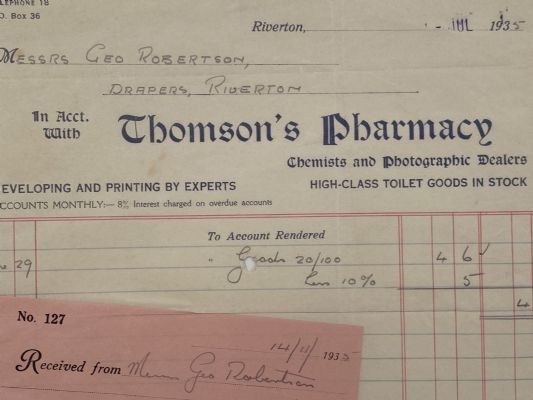 TELEPHONE 18
P.O. Box 36
Riverton, 1 - JUL 1935
MESSRS GEO ROBERTSON,
DRAPERS, RIVERTON
In Acct. With Thomson's Pharmacy
Chemists and Photographic Dealers
DEVELOPING AND PRINTING BY EXPERTS HIGH-CLASS TOILET GOODS IN STOCK
ACCOUNTS MONTHLY:— 8% Interest charged on overdue accounts
To Account Rendered
29 " Goods 20/100 4 6 ✓
Less 10% 5
4
No. 127
14/11/1935
Received from Messrs Geo Robertson